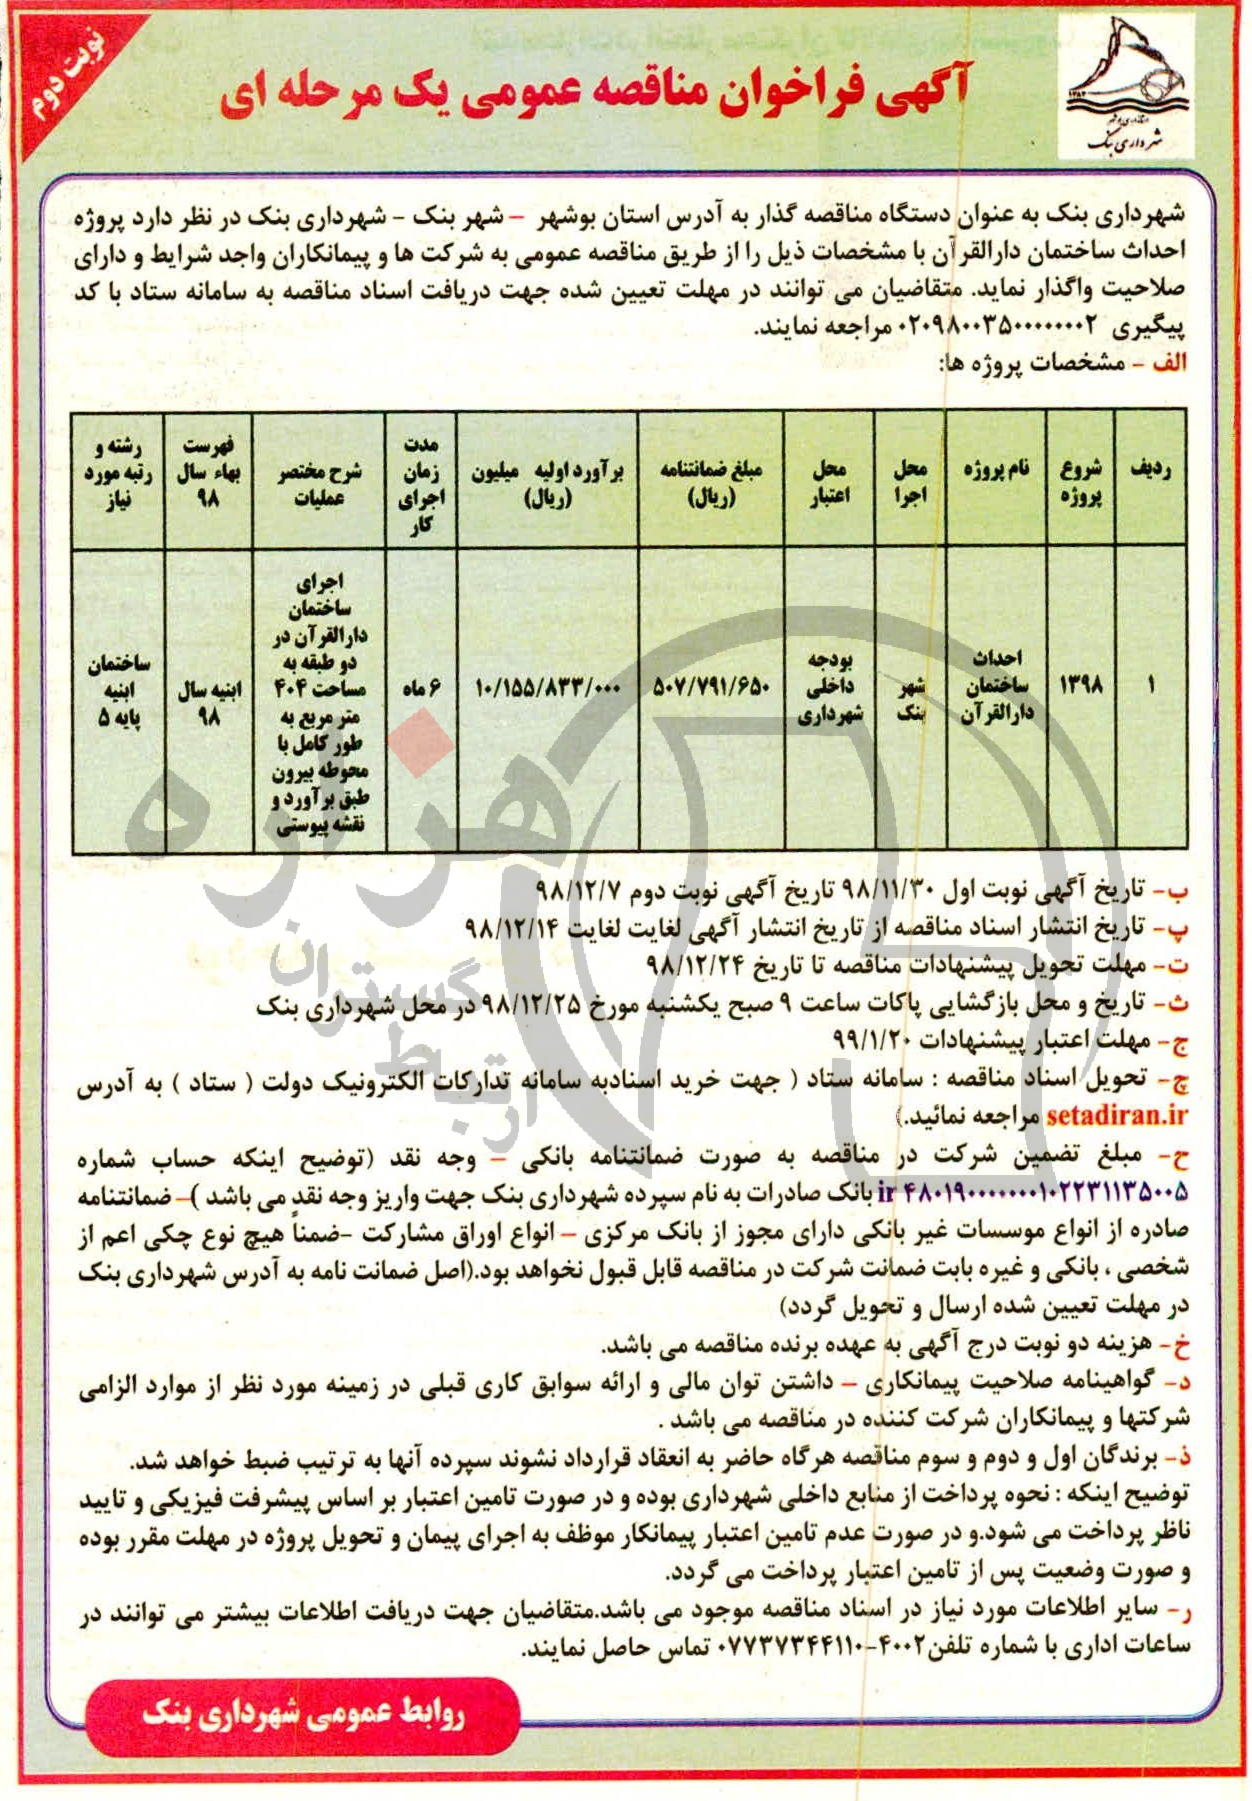 نوبت دوم
آگهی فراخوان مناقصه عمومی یک مرحله ای
۱۳۸۲
شهرداری بنک
شهرداری بنک به عنوان دستگاه مناقصه گذار به آدرس استان بوشهر – شهر بنک - شهرداری بنک در نظر دارد پروژه
احداث ساختمان دارالقرآن با مشخصات ذیل را از طریق مناقصه عمومی به شرکت ها و پیمانکاران واجد شرایط و دارای
صلاحیت واگذار نماید. متقاضیان می توانند در مهلت تعیین شده جهت دریافت اسناد مناقصه به سامانه ستاد با کد
پیگیری ۰۲۰۹۸۰۰۳۵۰۰۰۰۰۰۰۲ مراجعه نمایند.
الف - مشخصات پروژه ها:
ردیف
شروع
پروژه
نام پروژه
محل
اجرا
محل
اعتبار
مبلغ ضمانتنامه
(ریال)
برآورد اولیه میلیون
(ریال)
مدت
زمان
اجرای
کار
شرح مختصر
عملیات
فهرست
بهاء سال
۹۸
رشته و
رتبه مورد
نیاز
۱
۱۳۹۸
احداث
ساختمان
دارالقرآن
شهر
بنک
بودجه
داخلی
شهرداری
۵۰۷/۷۹۱/۶۵۰
۱۰/۱۵۵/۸۳۳/۰۰۰
۶ ماه
اجرای
ساختمان
دارالقرآن در
دو طبقه به
مساحت ۴۰۴
متر مربع به
طور کامل با
محوطه بیرون
طبق برآورد و
نقشه پیوستی
ابنیه سال
۹۸
ساختمان
ابنیه
پایه ۵
ب- تاریخ آگهی نوبت اول ۹۸/۱۱/۳۰ تاریخ آگهی نوبت دوم ۹۸/۱۲/۷
پ- تاریخ انتشار اسناد مناقصه از تاریخ انتشار آگهی لغایت لغایت ۹۸/۱۲/۱۴
ت- مهلت تحویل پیشنهادات مناقصه تا تاریخ ۹۸/۱۲/۲۴
ث- تاریخ و محل بازگشایی پاکات ساعت ۹ صبح یکشنبه مورخ ۹۸/۱۲/۲۵ در محل شهرداری بنک
ج- مهلت اعتبار پیشنهادات ۹۹/۱/۲۰
چ- تحویل اسناد مناقصه : سامانه ستاد ( جهت خرید اسنادبه سامانه تدارکات الکترونیک دولت ( ستاد ) به آدرس
setadiran.ir مراجعه نمائید.)
ح- مبلغ تضمین شرکت در مناقصه به صورت ضمانتنامه بانکی – وجه نقد (توضیح اینکه حساب شماره
ir ۴۸۰۱۹۰۰۰۰۰۰۰۰۱۰۲۲۳۱۱۳۵۰۰۵ بانک صادرات به نام سپرده شهرداری بنک جهت واریز وجه نقد می باشد )– ضمانتنامه
صادره از انواع موسسات غیر بانکی دارای مجوز از بانک مرکزی – انواع اوراق مشارکت -ضمناً هیچ نوع چکی اعم از
شخصی ، بانکی و غیره بابت ضمانت شرکت در مناقصه قابل قبول نخواهد بود.(اصل ضمانت نامه به آدرس شهرداری بنک
در مهلت تعیین شده ارسال و تحویل گردد)
خ- هزینه دو نوبت درج آگهی به عهده برنده مناقصه می باشد.
د- گواهینامه صلاحیت پیمانکاری – داشتن توان مالی و ارائه سوابق کاری قبلی در زمینه مورد نظر از موارد الزامی
شرکتها و پیمانکاران شرکت کننده در مناقصه می باشد .
ذ- برندگان اول و دوم و سوم مناقصه هرگاه حاضر به انعقاد قرارداد نشوند سپرده آنها به ترتیب ضبط خواهد شد.
توضیح اینکه : نحوه پرداخت از منابع داخلی شهرداری بوده و در صورت تامین اعتبار بر اساس پیشرفت فیزیکی و تایید
ناظر پرداخت می شود.و در صورت عدم تامین اعتبار پیمانکار موظف به اجرای پیمان و تحویل پروژه در مهلت مقرر بوده
و صورت وضعیت پس از تامین اعتبار پرداخت می گردد.
ر- سایر اطلاعات مورد نیاز در اسناد مناقصه موجود می باشد.متقاضیان جهت دریافت اطلاعات بیشتر می توانند در
ساعات اداری با شماره تلفن۴۰۰۲-۰۷۷۳۷۳۴۴۱۱۰ تماس حاصل نمایند.
روابط عمومی شهرداری بنک
هزاره
ارتباط گستران